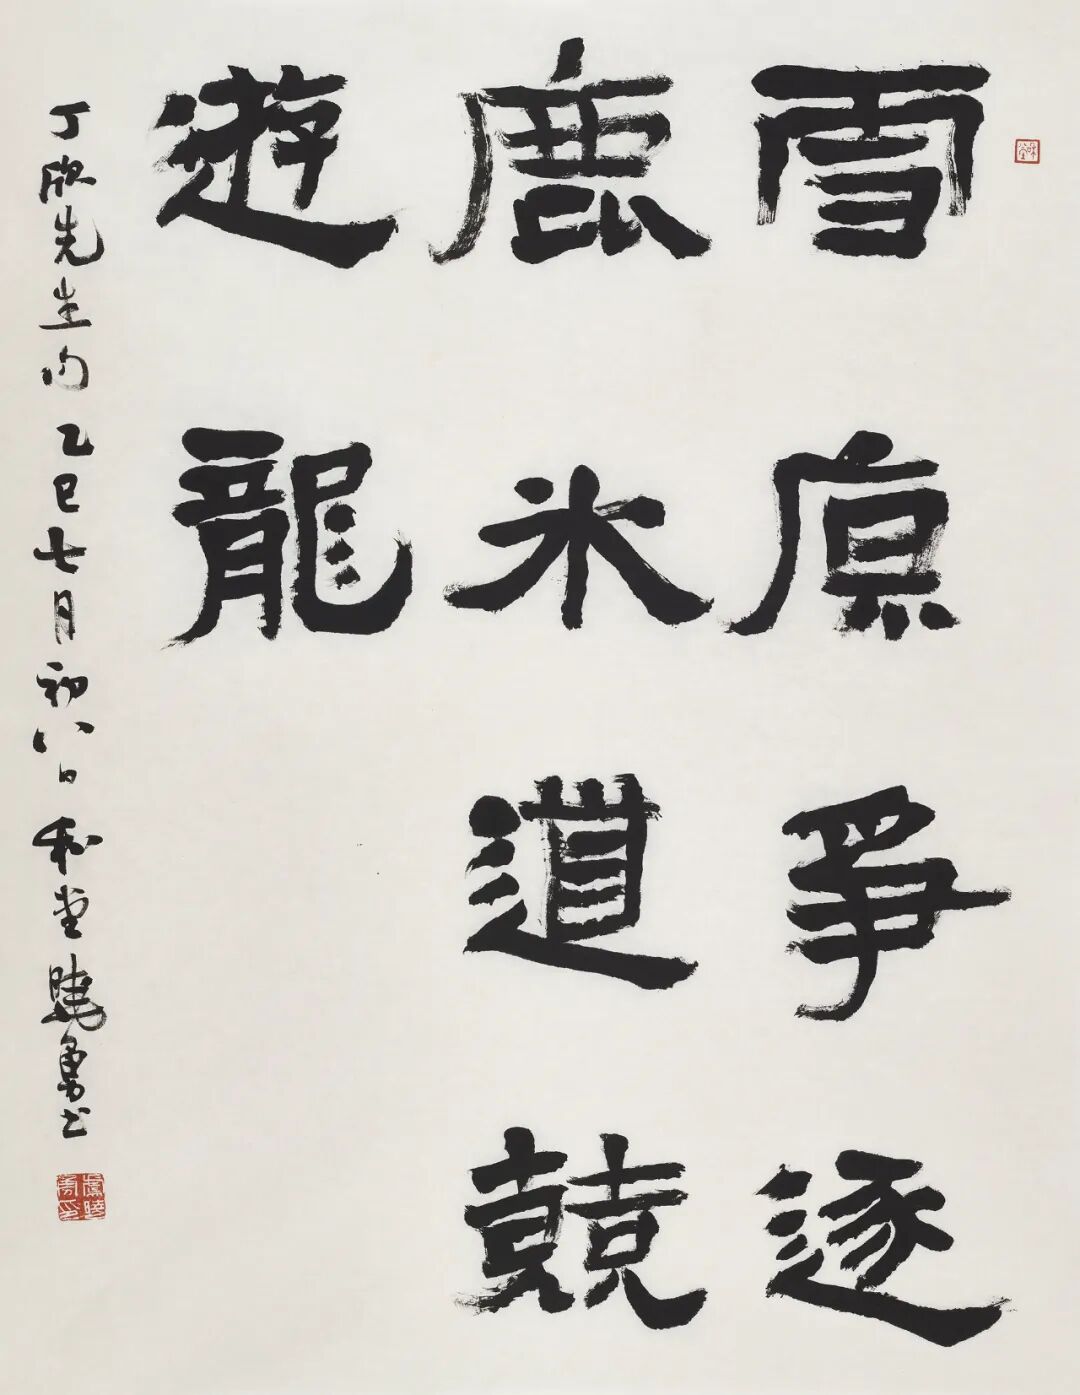 雪原爭逐
鹿氷道競
遊龍
丁欣先生句 乙巳七月初八日 和堂曉勇書